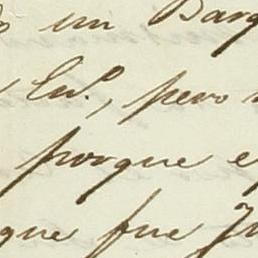 un Barq
En.º, pero
porque e
que fue Ju